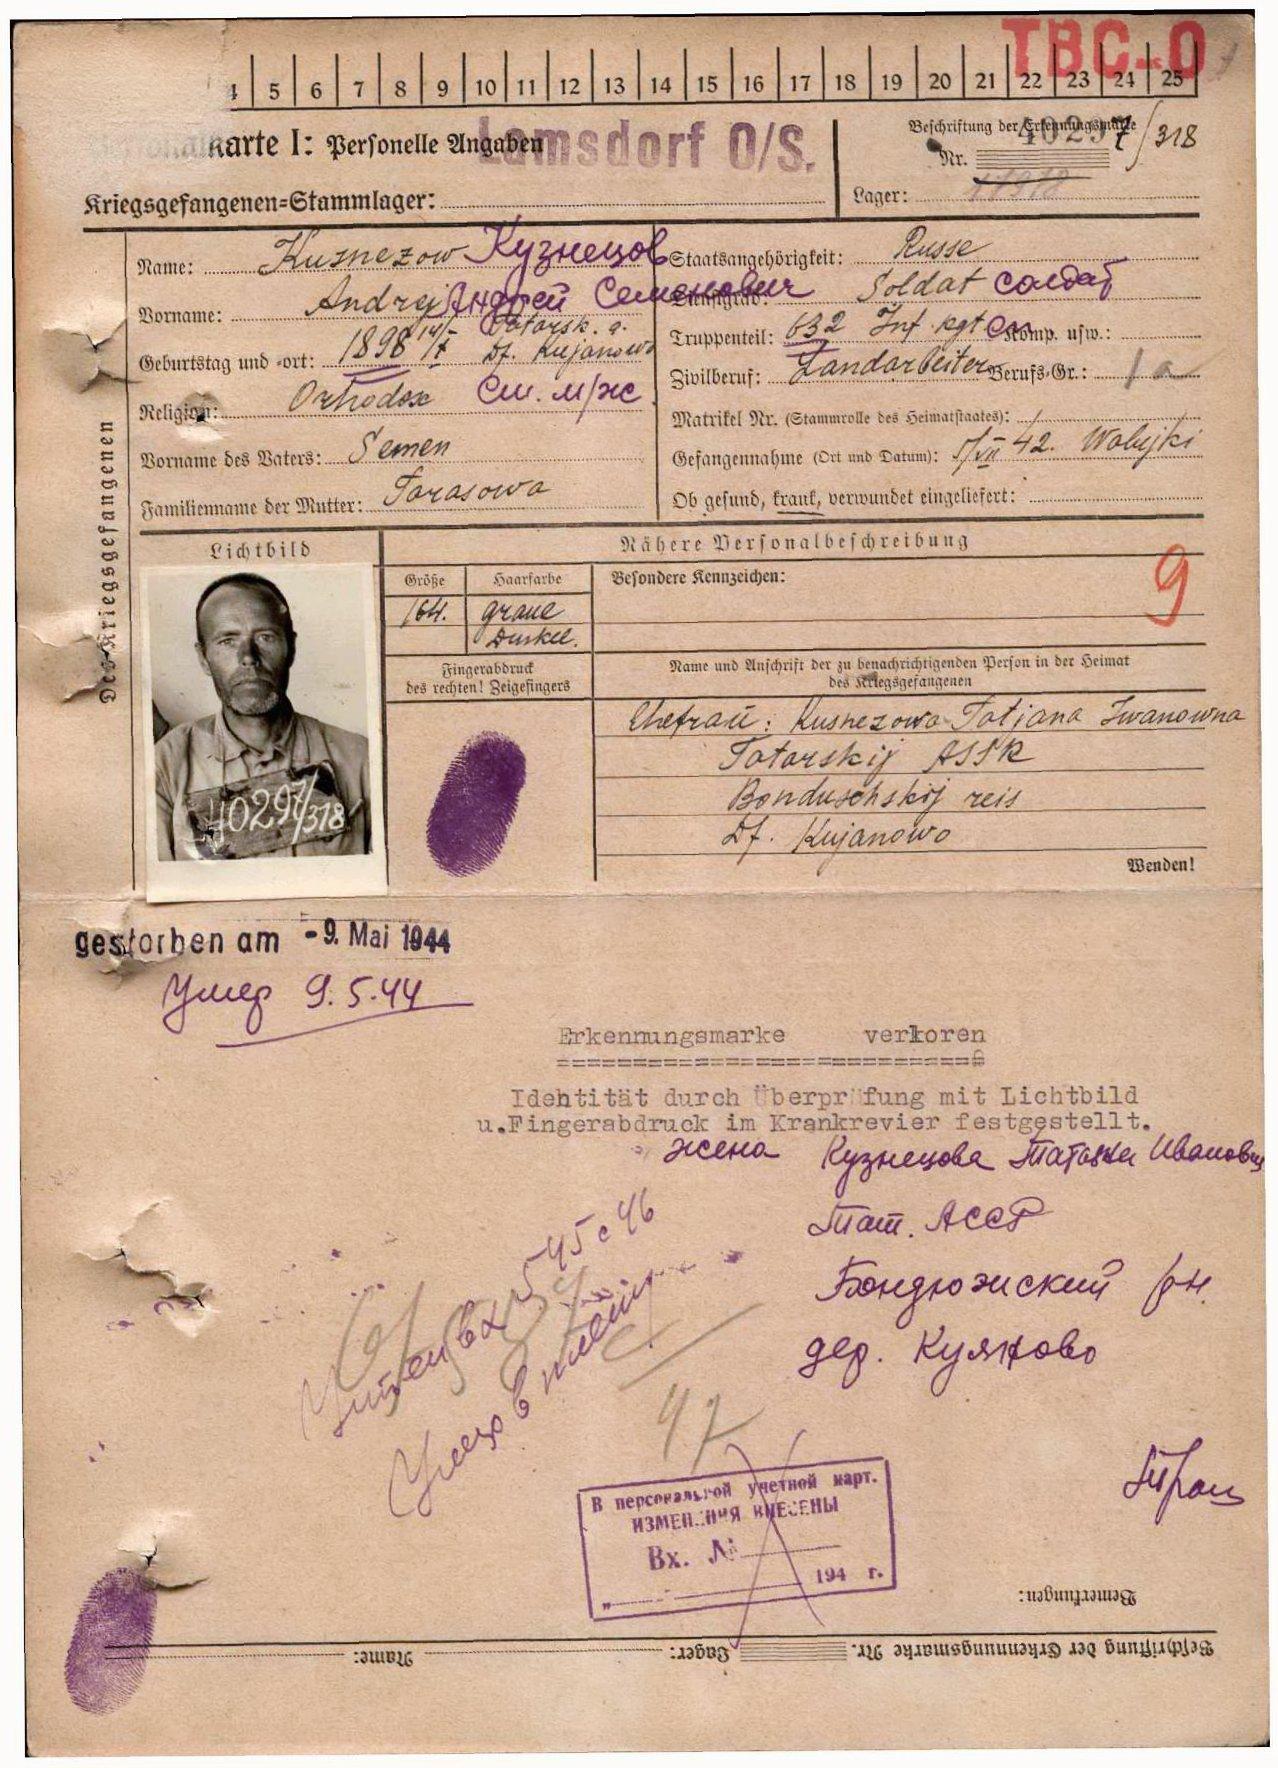 TBC-0
4 5 6 7 8 9 10 11 12 13 14 15 16 17 18 19 20 21 22 23 24 25
Personalkarte I: Personelle Angaben
Lamsdorf O/S.
Beschriftung der Erkennungsmarke
Nr. 40297/318
Kriegsgefangenen=Stammlager:
Lager: 17918
Des Kriegsgefangenen
Name: Kusnezow Кузнецов
Staatsangehörigkeit: Russe
Vorname: Andrej Андрей Семенович
Dienstgrad: Soldat солдат
Tatarsk. a.
Truppenteil: 632 Inf. Rgt Сп Komp. usw.:
Geburtstag und -ort: 1898 Df. Kujanowo
Zivilberuf: Landarbeiter Berufs-Gr.: 1a
Religion: Orthodox См. м/ж
Matrikel Nr. (Stammrolle des Heimatstaates):
Vorname des Vaters: Semen
Gefangennahme (Ort und Datum): 5/VII 42. Walujki
Familienname der Mutter: Tarasowa
Ob gesund, krank, verwundet eingeliefert:
Lichtbild
Nähere Personalbeschreibung
Größe Haarfarbe Besondere Kennzeichen:
9
164. graue
Dunkel.
Fingerabdruck
des rechten! Zeigefingers
Name und Anschrift der zu benachrichtigenden Person in der Heimat
des Kriegsgefangenen
Ehefrau: Kusnezowa Tatjana Iwanowna
Tatarskij ASSR
Bonduschskij reis
Df. Kujanowo
40297/318
Wenden!
gestorben am -9. Mai 1944
Умер 9.5.44
Erkennungsmarke verloren
==========================
Identität durch Überprüfung mit Lichtbild
u.Fingerabdruck im Krankrevier festgestellt.
жена Кузнецова Татьяна Ивановна
Тат. АССР
Бондюжский р-н.
дер. Куяново
545 с 46
Умер в плену
47
В персональной учетной карт.
ИЗМЕНЕНИЯ ВНЕСЕНЫ
Вх. №
194 г.
Bemerkungen:
Beschriftung der Erkennungsmarke Nr. Lager: Name: